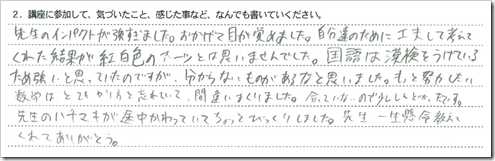 2. 講座に参加して、気づいたこと、感じた事など、なんでも書いていください。
先生のインパクトが強すぎました。おかげで目が覚めました。自分達のために工夫して考えて
くれた結果が紅白色のスーツとは思いませんでした。国語は漢検をうけている
ため強いと思っていたのですが、分からないものがある方と思いました。もっと努力したい
数学はとてもかり方を忘れていて、間違いまくりました。合っていないので少ししんどかったです。
先生のハチマキが途中かわっていてちょっとびっくりしました。先生一生懸命教えて
くれてありがとう。